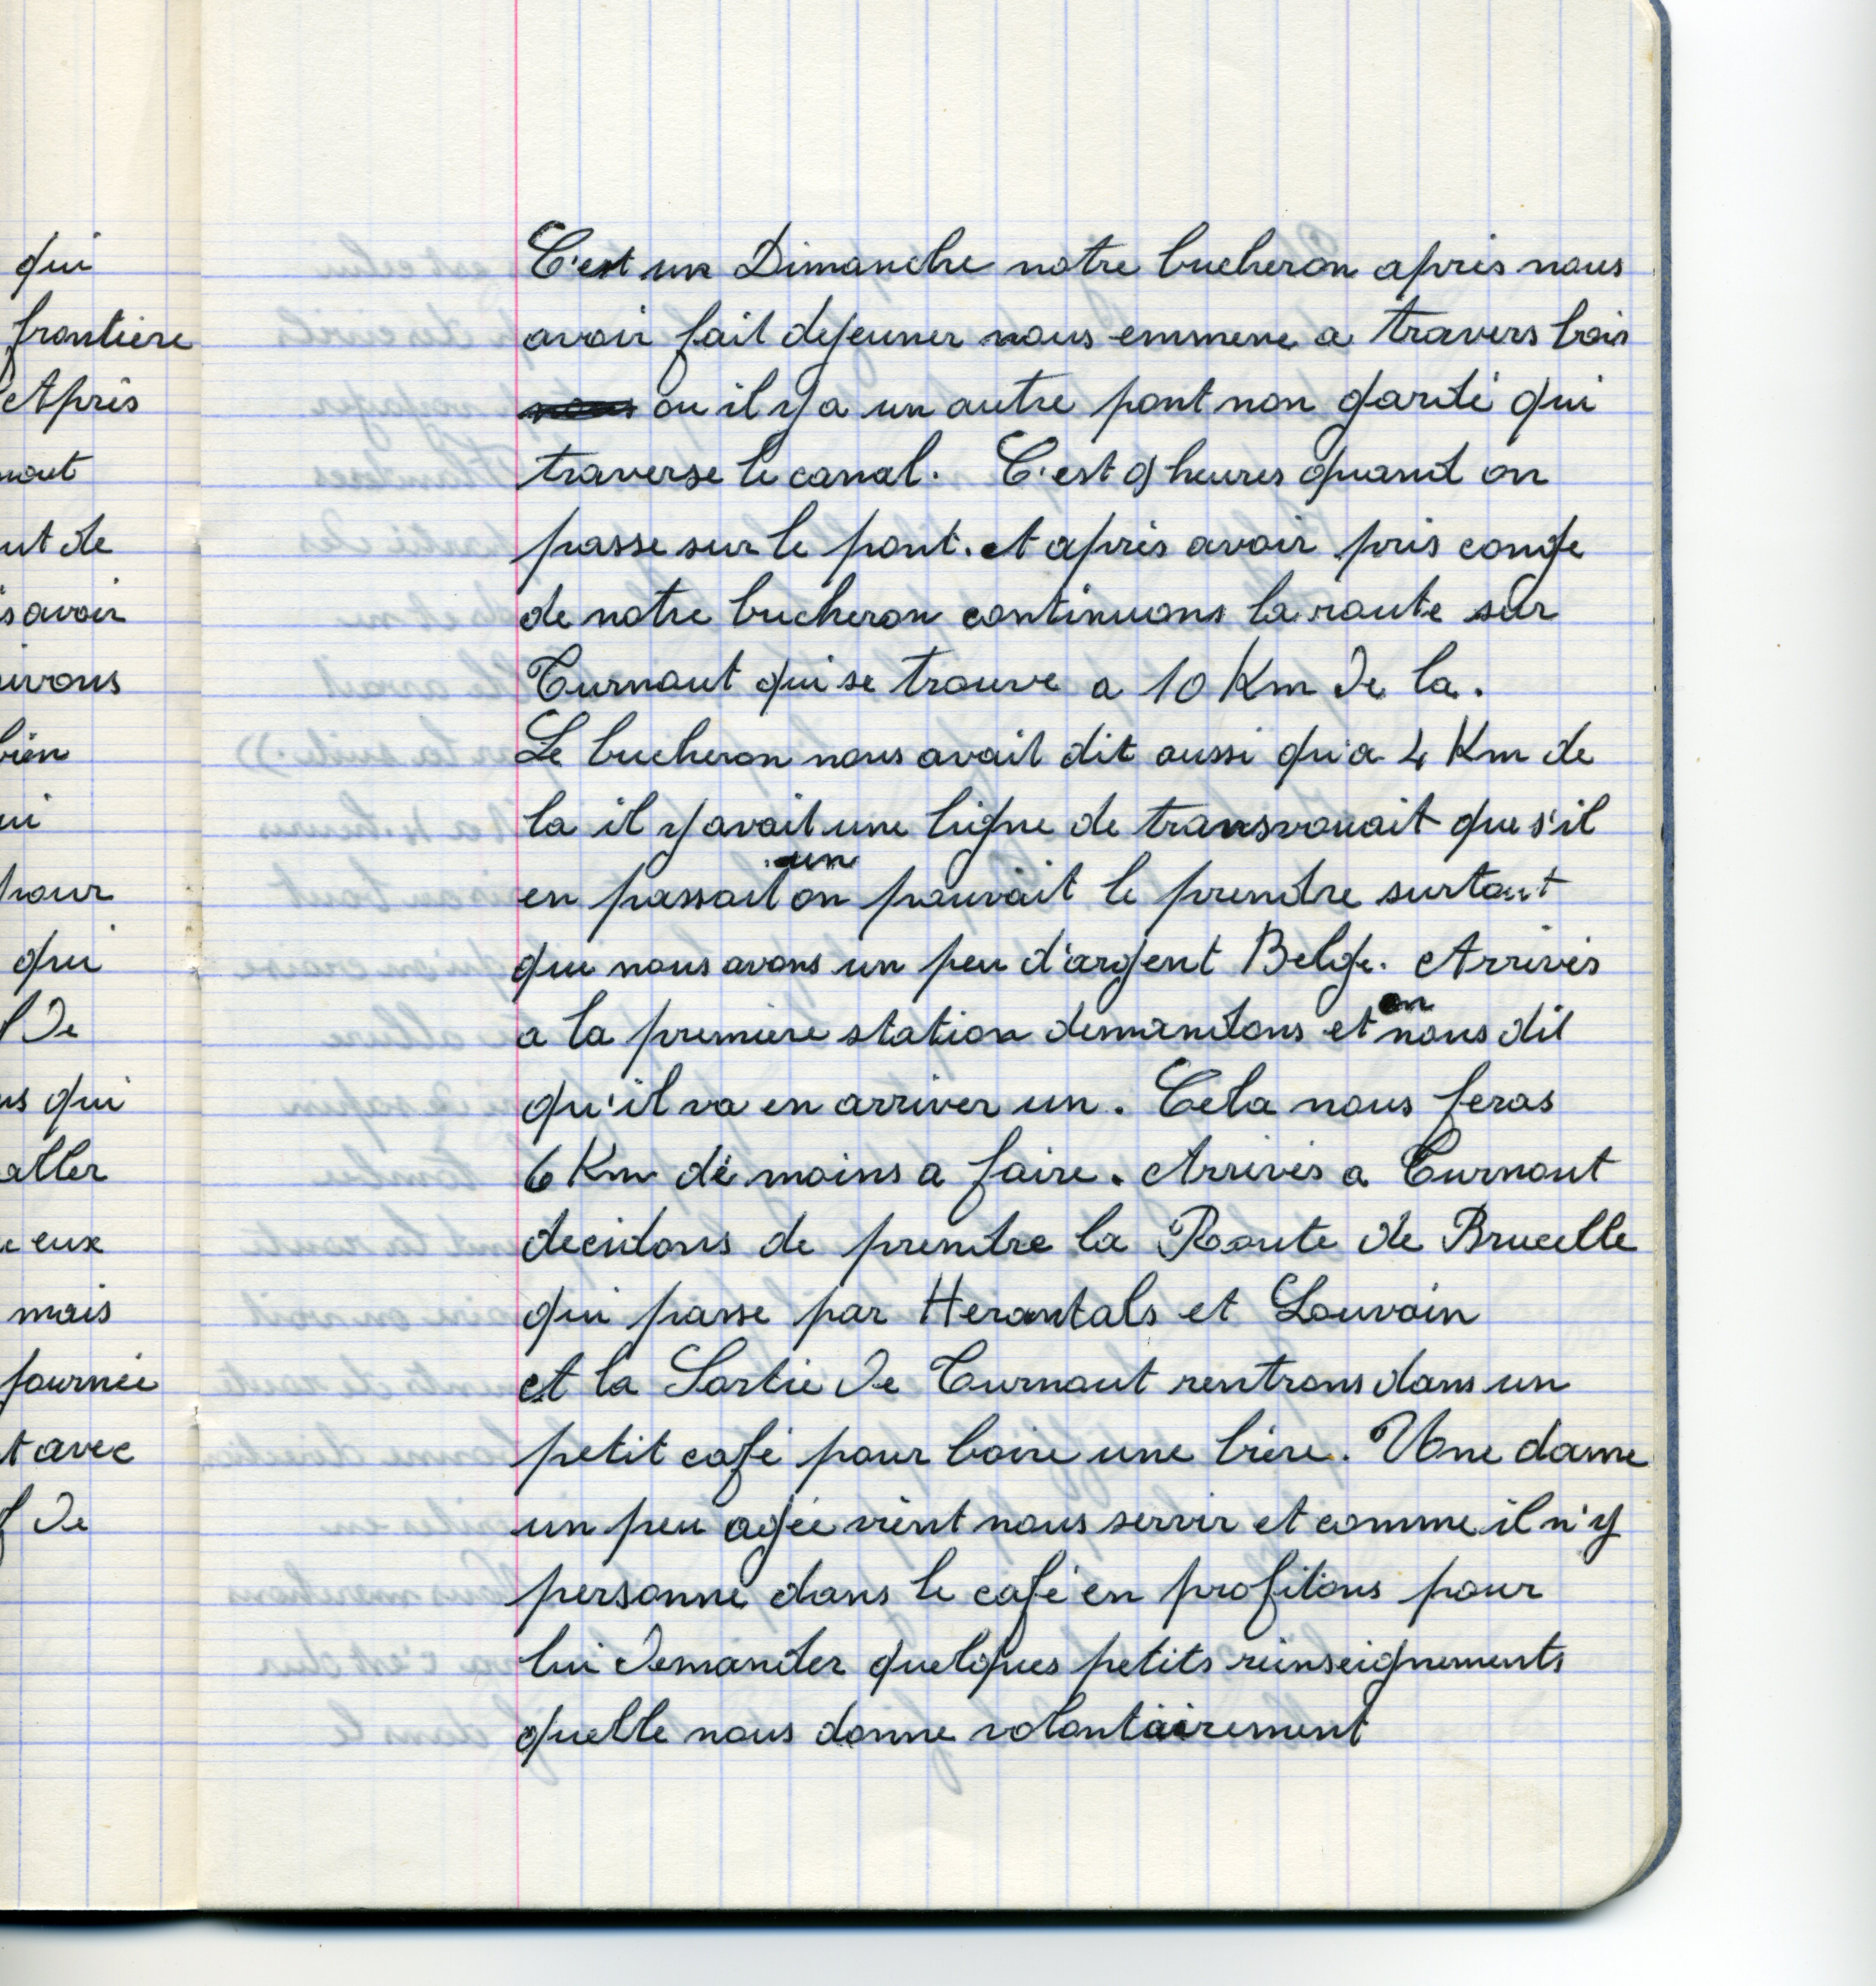 qui
frontiere
Après
ut de
s avoir
bien
pour
qui
De
us qui
aller
eux
mais
journée
t avec
De
C'est un Dimanche notre bucheron après nous
avoir fait dejeuner nous emmene a travers bois
nous ou il y a un autre pont non gardé qui
traverse le canal. C'est 9 heures quand on
passe sur le pont. et après avoir pris conge
de notre bucheron continuons la route sur
Turnout qui se trouve a 10 Km de la.
Le bucheron nous avait dit aussi qu'a 4 Km de
la il y avait une ligne de transvouait que s'il
en passait un on pouvait le prendre surtout
que nous avons un peu d'argent Belge. Arrivés
a la premiere station demandons et on nous dit
qu'il va en arriver un. Cela nous feras
6 Km de moins a faire. Arrivés a Turnout
decidons de prendre la Route de Brucelle
qui passe par Herantals et Louvain
et la Sortie de Turnout rentrons dans un
petit café pour boire une bière. Une dame
un peu agée vient nous servir et comme il n'y
personne dans le café en profitons pour
lui demander quelques petits reinseignements
quelle nous donne volontairement